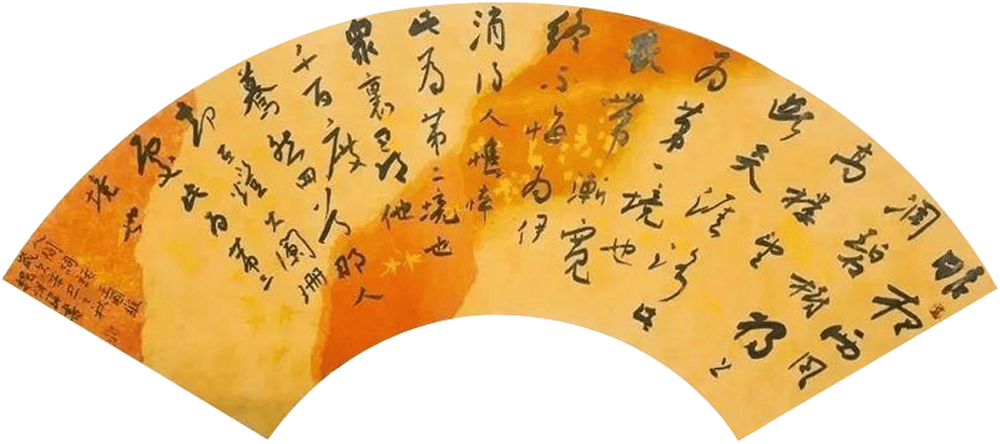 昨夜西风
凋碧树独上
高楼望
尽天涯路此
为第一境也
衣带渐宽
終不悔为伊
消得人憔悴
此为第二境也
眾裏尋他
千百度
驀然回首那人
却在燈火阑珊
处此为第三
境也